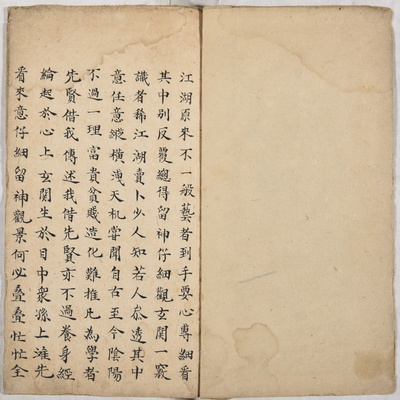 江湖原來不一般藝者到手要心專細看
其中別反覆總得留神仔細觀玄関一竅
識者稀江湖賣卜少人知若人叅透其中
意任意縱横洩天机嘗聞自古至今陰陽
不過一理富貴貧賤造化難推凡為學者
先賢借我傳述我借先賢亦不過養身經
綸起於心上玄関生於目中衆孫上滩先
看來意仔細留神觀景何必叠叠忙忙全